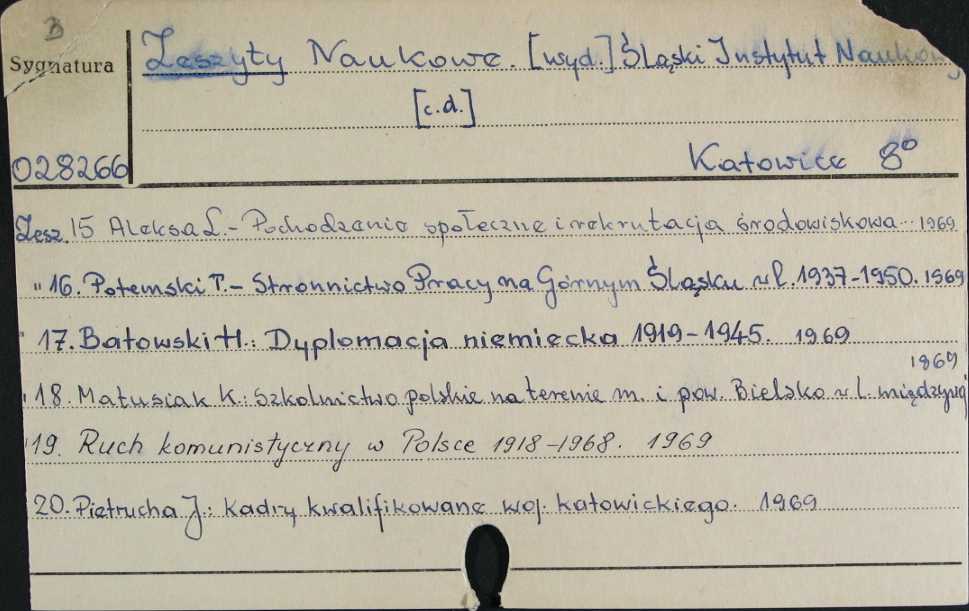 B
Sygnatura
Zeszyty Naukowe. [wyd.] Śląski Instytut Naukowy
[c.d.]
028266
Katowice 8°
Zesz. 15 Aleksa L. - Pochodzenie społeczne i rekrutacja środowiskowa... 1969
" 16. Potemski T. - Stronnictwo Pracy na Górnym Śląsku w l. 1937-1950. 1969
" 17. Batowski H.: Dyplomacja niemiecka 1919-1945. 1969
1969
" 18. Matusiak K.: Szkolnictwo polskie na terenie m. i pow. Bielsko w l. międzywoj
" 19. Ruch komunistyczny w Polsce 1918-1968. 1969
20. Pietrucha J.: Kadry kwalifikowane woj. katowickiego. 1969